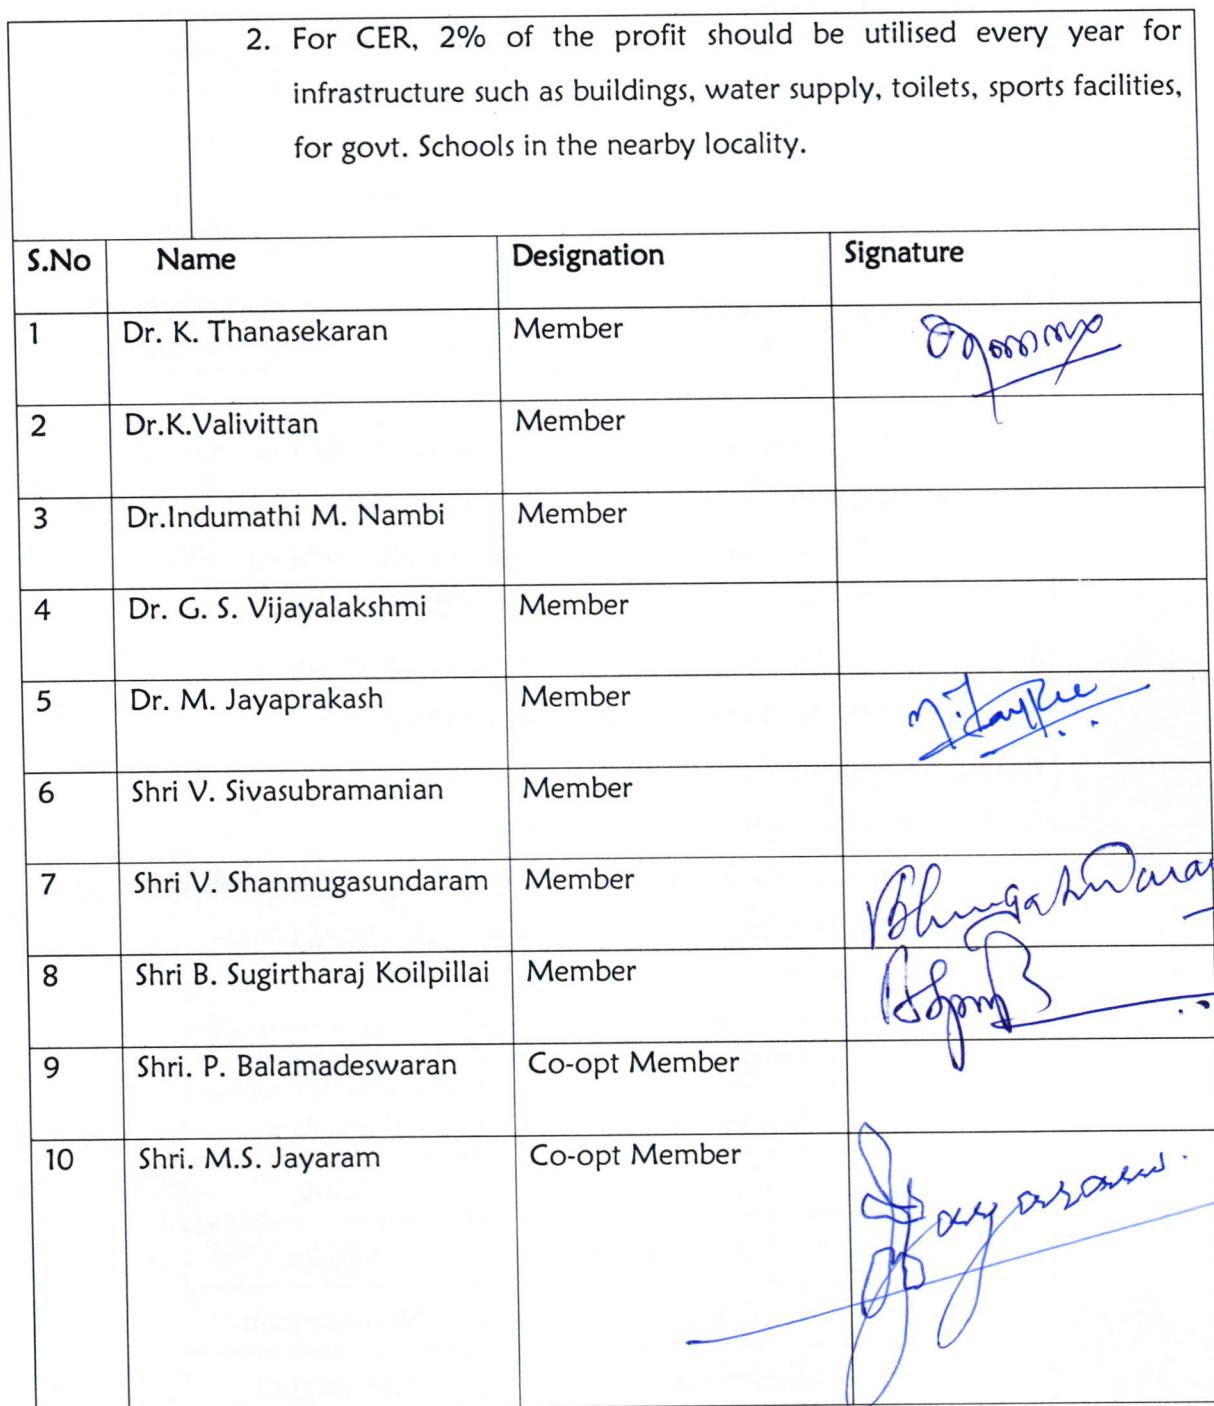 2. For CER, 2% of the profit should be utilised every year for
infrastructure such as buildings, water supply, toilets, sports facilities,
for govt. Schools in the nearby locality.
S.No Name Designation Signature
1 Dr. K. Thanasekaran Member
2 Dr.K.Valivittan Member
3 Dr.Indumathi M. Nambi Member
4 Dr. G. S. Vijayalakshmi Member
5 Dr. M. Jayaprakash Member
6 Shri V. Sivasubramanian Member
7 Shri V. Shanmugasundaram Member
8 Shri B. Sugirtharaj Koilpillai Member
9 Shri. P. Balamadeswaran Co-opt Member
10 Shri. M.S. Jayaram Co-opt Member